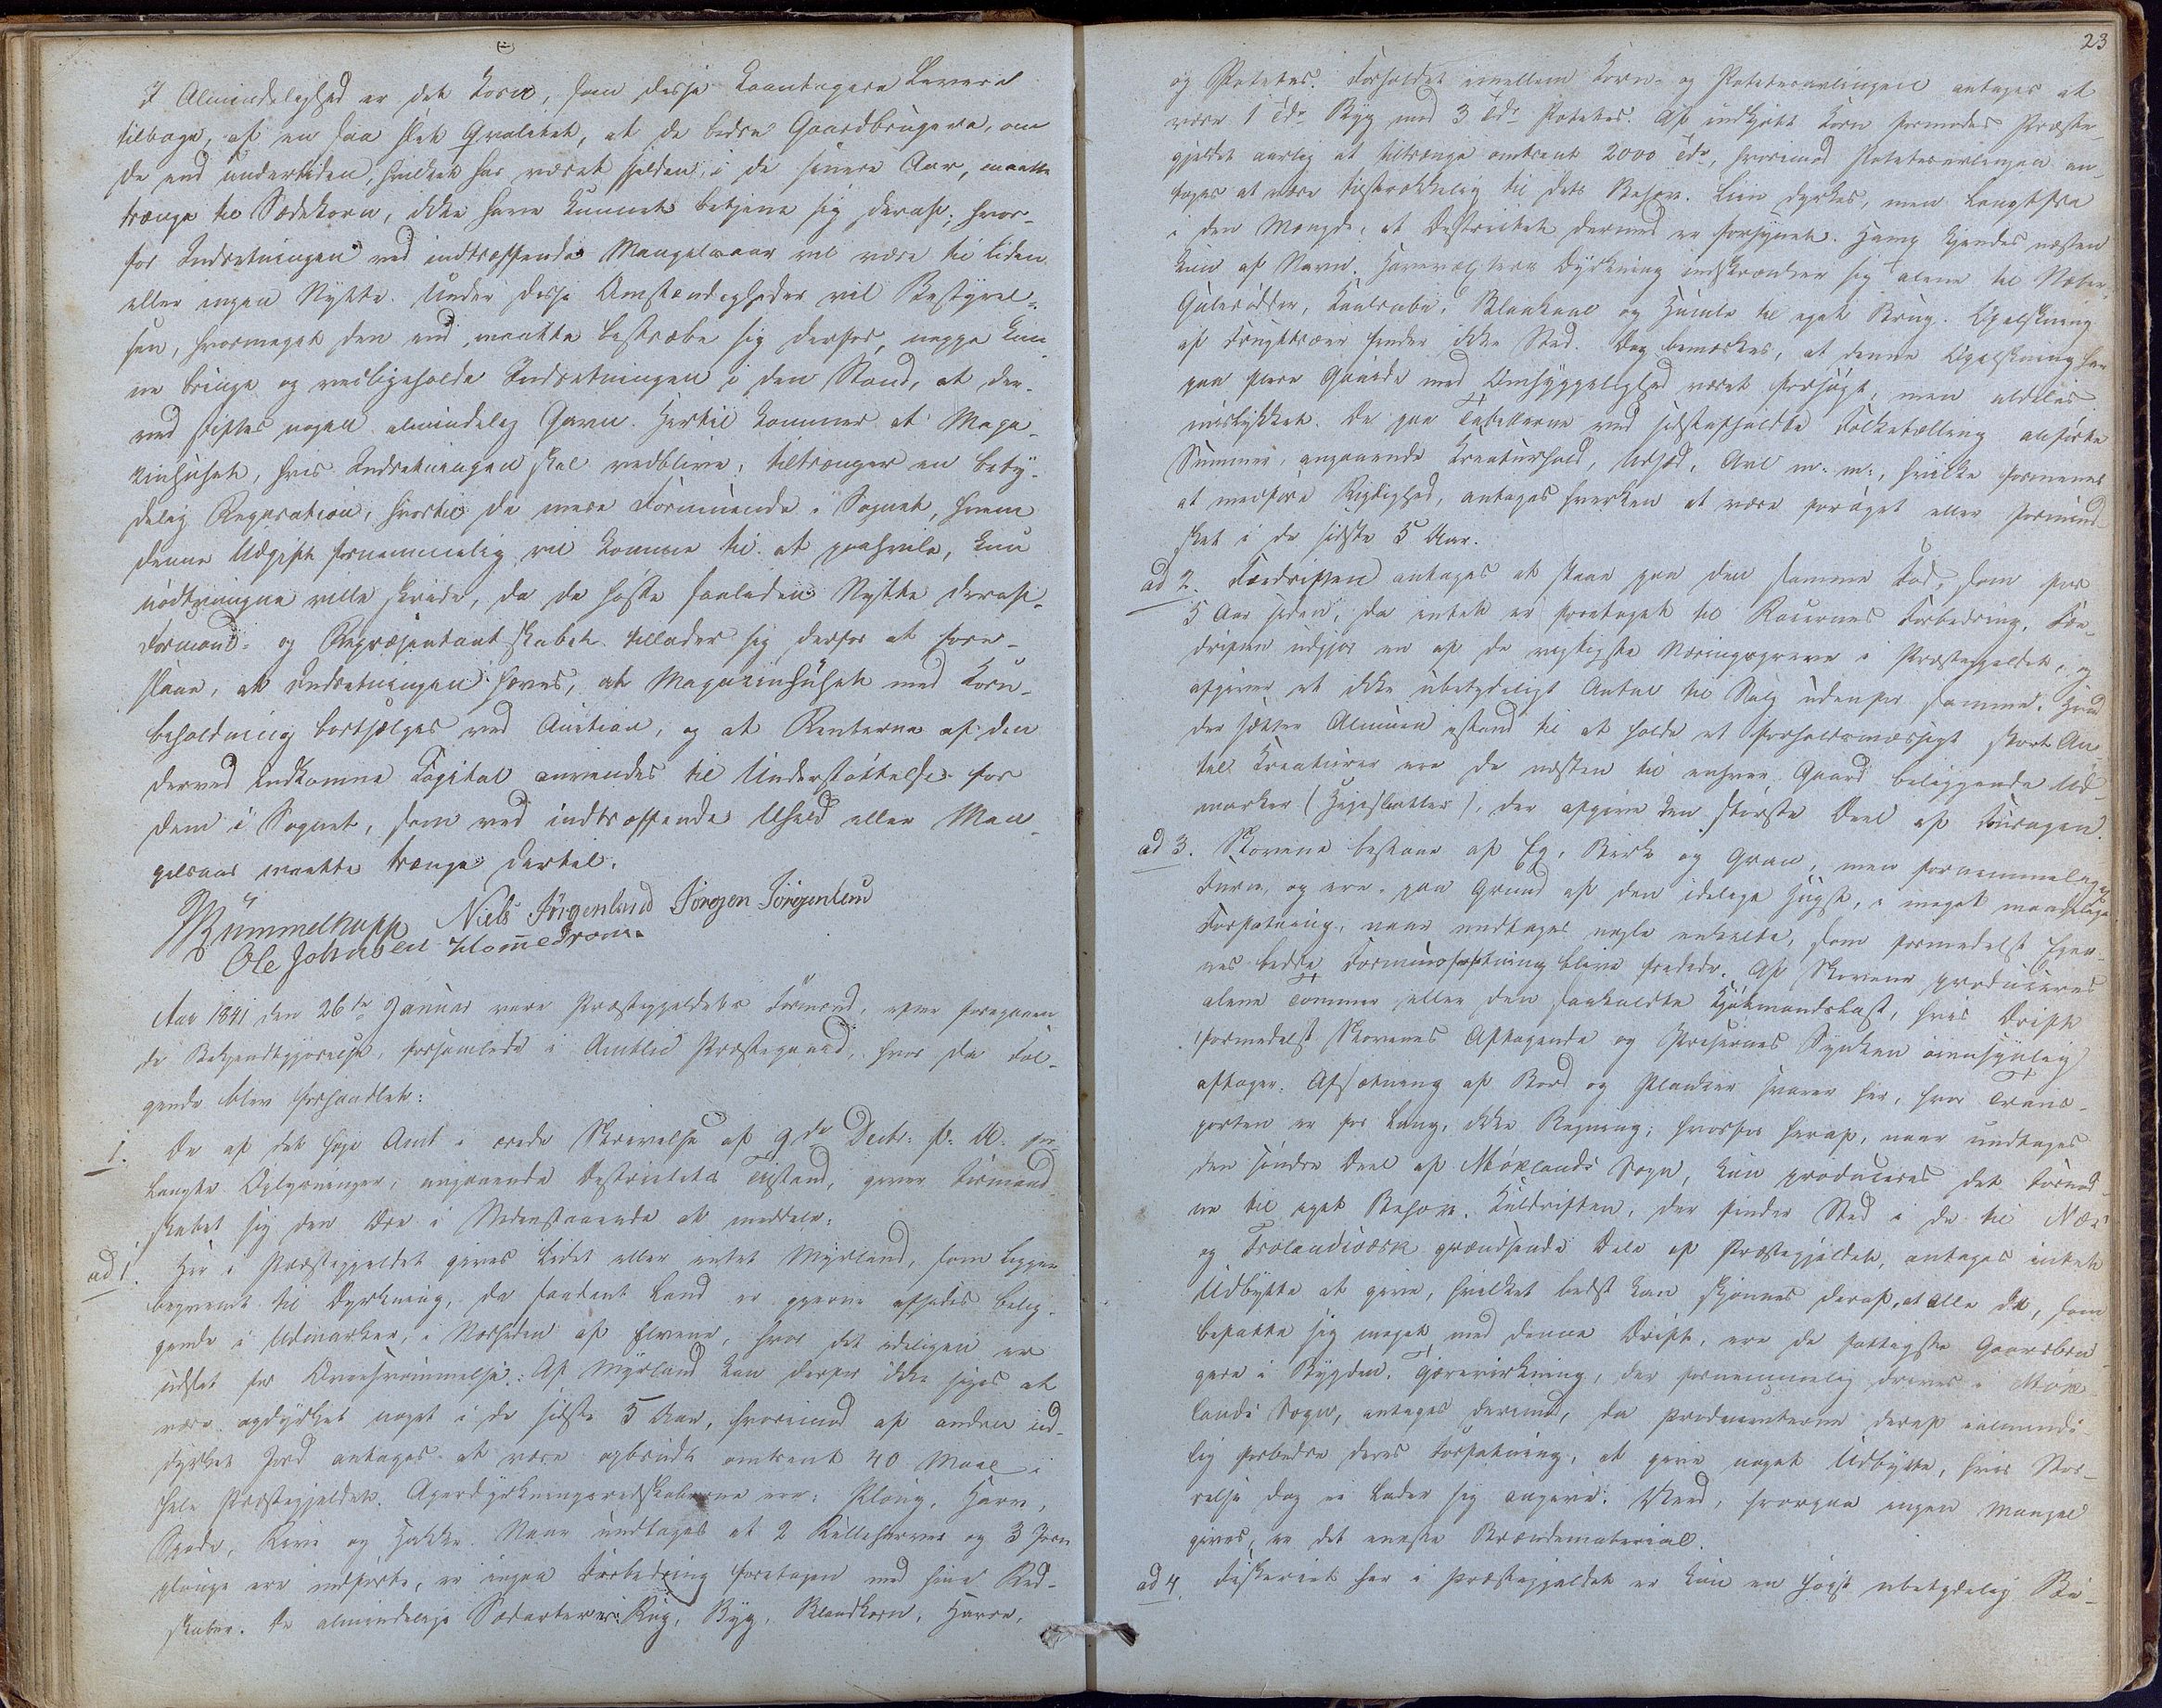 I Almindelighed er det Korn, som disse Laantagere Levere
tilbage, af en saa slet Qvalitet, at de bedre Gaardbrugere, om
de end undertiden, hvilket har været sjelden i de senere Aar, maatte
trænge til Sædekorn, ikke have kunnet betjene sig deraf; hvor-
for Indretningen ved indtræffende Mangelaar vil være til liden
eller ingen Nytte. Under disse Omstændigheder vil Bestyrel-
sen, hvormeget den end maatte bestræbe sig derfor, neppe kun-
ne bringe og vedligeholde Indretningen i den Stand, at der-
ved stiftes nogen almindelig Gavn. Hertil kommer at Maga-
zinhuset, hvis Indretningen skal vedblive, tiltrænger en bety-
delig Reparation, hvortil de mere Formuende i Sognet, hvem
denne Udgift fornemmelig vil komme til at paahvile, kun
nødtvungne ville skride, da de høste saaliden Nytte deraf.
Formand- og Repræsentantskabet tillader sig derfor at fore-
slaae, at Indretningen hæves, at Magazinhuset med Korn-
beholdning bortsælges ved Auction, og at Renterne af den
derved indkomne Capital anvendes til Understøttelse for
dem i Sognet, som ved indtræffende Uheld eller Man-
gelsaar maatte trænge dertil.
Bummelhupp Niels Jørgenland Jørgen Jørgenlend
Ole Johnsen Homedrom
Aar 1841 den 26de Januar vare Præstegjeldets Formænd, efter foregaaen-
de Bekjendtgjørelse, forsamlede i Amblie Præstegaard, hvor da Føl-
gende blev forhandlet:
1. De af det høie Amt i ærede Skrivelse af 9de Decbr. f. A. for-
langte Oplysninger, angaaende Destrictets Tilstand, giver Formand-
skabet sig den Ære i Nedenstaaende at meddele:
ad 1. Her i Præstegjeldet gives Lidet eller intet Myrland, som ligger
beqvemt til Dyrkning, da saadant Land er gjerne afsides belig-
gende i Udmarker, i Nærheden af Elvene, hvor det ideligen er
udsat for Oversvømmelse. Af Myrland kan derfor ikke siges at
være opdyrket noget i de sidste 5 Aar, hvorimod af anden ud-
dyrket Jord antages at være opbrudt omtrent 40 Maal i
hele Præstegjeldet. Agerdyrkningsredskaberne ere: Ploug, Harv,
Spade, Rive og Hakke. Naar undtages at 2 Rulleharver og 3 Jern
plouge ere indførte, er ingen Forbedring foretagen med hine Red-
skaber. De almindelige Sædarter ere: Rug, Byg, Blandkorn, Havre,
23
og Potetes. Forholdet imellem Korn- og Potetesavlingen antages at
være 1 Tdr Byg mod 3 Tdr Potetes. Af indkjøbt Korn formodes Præste-
gjeldet aarlig at tiltrænge omtrent 2000 Tdr, hvorimod Potetesavlingen an-
tages at være tilstrækkelig til dets Behov. Liin dyrkes, men langtfra
i den Mængde, at Destrictet dermed er forsynet. Hamp kjendes næsten
kun af Navn. Havevæxters Dyrkning indskrænker sig alene til Næper,
Gulerødder, Kaalrabi, Blaakaal og Humle til eget Brug. Opelskning
af Frugttræer finder ikke Sted. Dog bemærkes, at denne Opelskning har
paa flere Gaarde med Omhyggelighed været forsøgt, men aldeles
mislykket. De paa Tabellerne ved sidstafholdte Folketælling anførte
Summer, angaaende Kreaturhold, Udsæd, Avl m: m:, hvilke formenes
at medføre Rigtighed, antages hverken at være forøget eller formind-
sket i de sidste 5 Aar.
ad 2. Fædriften antages at staae paa den samme Fod, som for
5 Aar siden, da intet er foretaget til Racernes Forbedring. Fæ-
driften udgjør en af de vigtigste Næringsgrene i Præstegjeldet, og
afgiver et ikke ubetydeligt Antal til Salg udenfor samme. Hvad
der sætter Almuen istand til at holde et forholdsmæssigt stort An-
tal Kreaturer ere de næsten til enhver Gaard beliggende Ud-
marker (Heieslætter), der afgive den største Deel af Fouragen.
ad 3. Skovene bestaae af Eg, Birk og Gran, men fornemmelig af
Furu, og ere, paa Grund af den idelige Hugst, i meget maadelige
Forfatning, naar undtages nogle enkelte, som formedelst Eier-
nes bedre Formuesforfatning bleve fredede. Af Skovene produceres
alene Tømmer eller den saakaldte Kjøbmandslast, hvis Drift
formedelst Skovenes Aftagende og Prisernes Synken øiensynlig
aftager. Afsætning af Bord og Planker svarer her, hvor Trans-
porten er for lang, ikke Regning; hvorfor heraf, naar undtages
den søndre Deel af Moxlands Sogn, kun produceres det fornød-
ne til eget Behov. Kuldriften, der finder Sted i de til Næs
og Frolandsværk grændsende Dele af Præstegjeldet, antages intet
Udbytte at give, hvilket bedst kan skjønnes deraf, at alle de, som
befatte sig meget med denne Drift, ere de fattigste Gaardbru-
gere i Bygden. Tjærevirkning, der fornemmelig drives i Mox-
lands Sogn, antages derimod, da Producenterne deraf almind-
lig forbedre deres Forfatning, at give noget Udbytte, hvis Stør-
relse dog ei lader sig angive. Veed, hvorpaa ingen Mangel
gives, er det eneste Brændemateriale.
ad 4. Fiskeriet her i Præstegjeldet er kun en høist ubetydelig Bi-